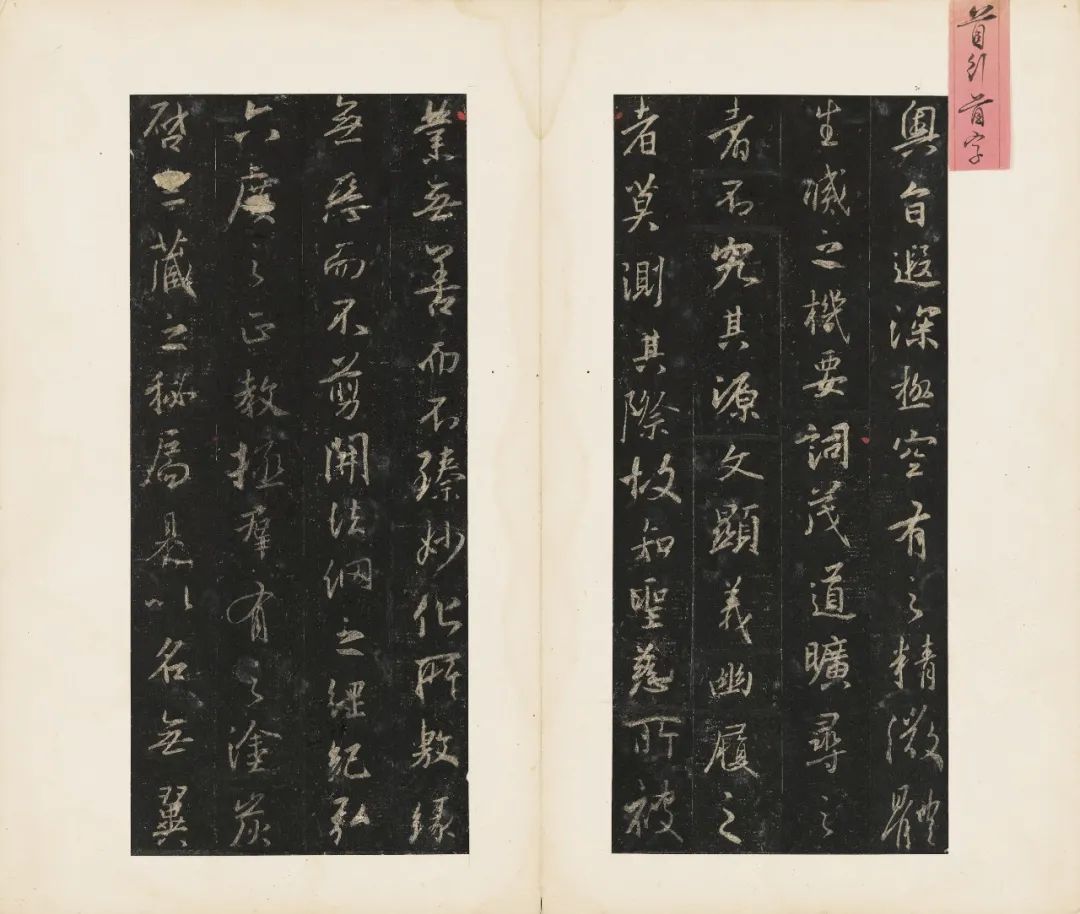 奧旨遐深極空有之精微體
生滅之機要詞茂道曠尋之
者不究其源文顯義幽履之
者莫測其際故知聖慈所被
業無善而不臻妙化所敷緣
無惡而不剪開法網之綱紀弘
六度之正教拯羣有之塗炭
啓三藏之秘扃是以名無翼